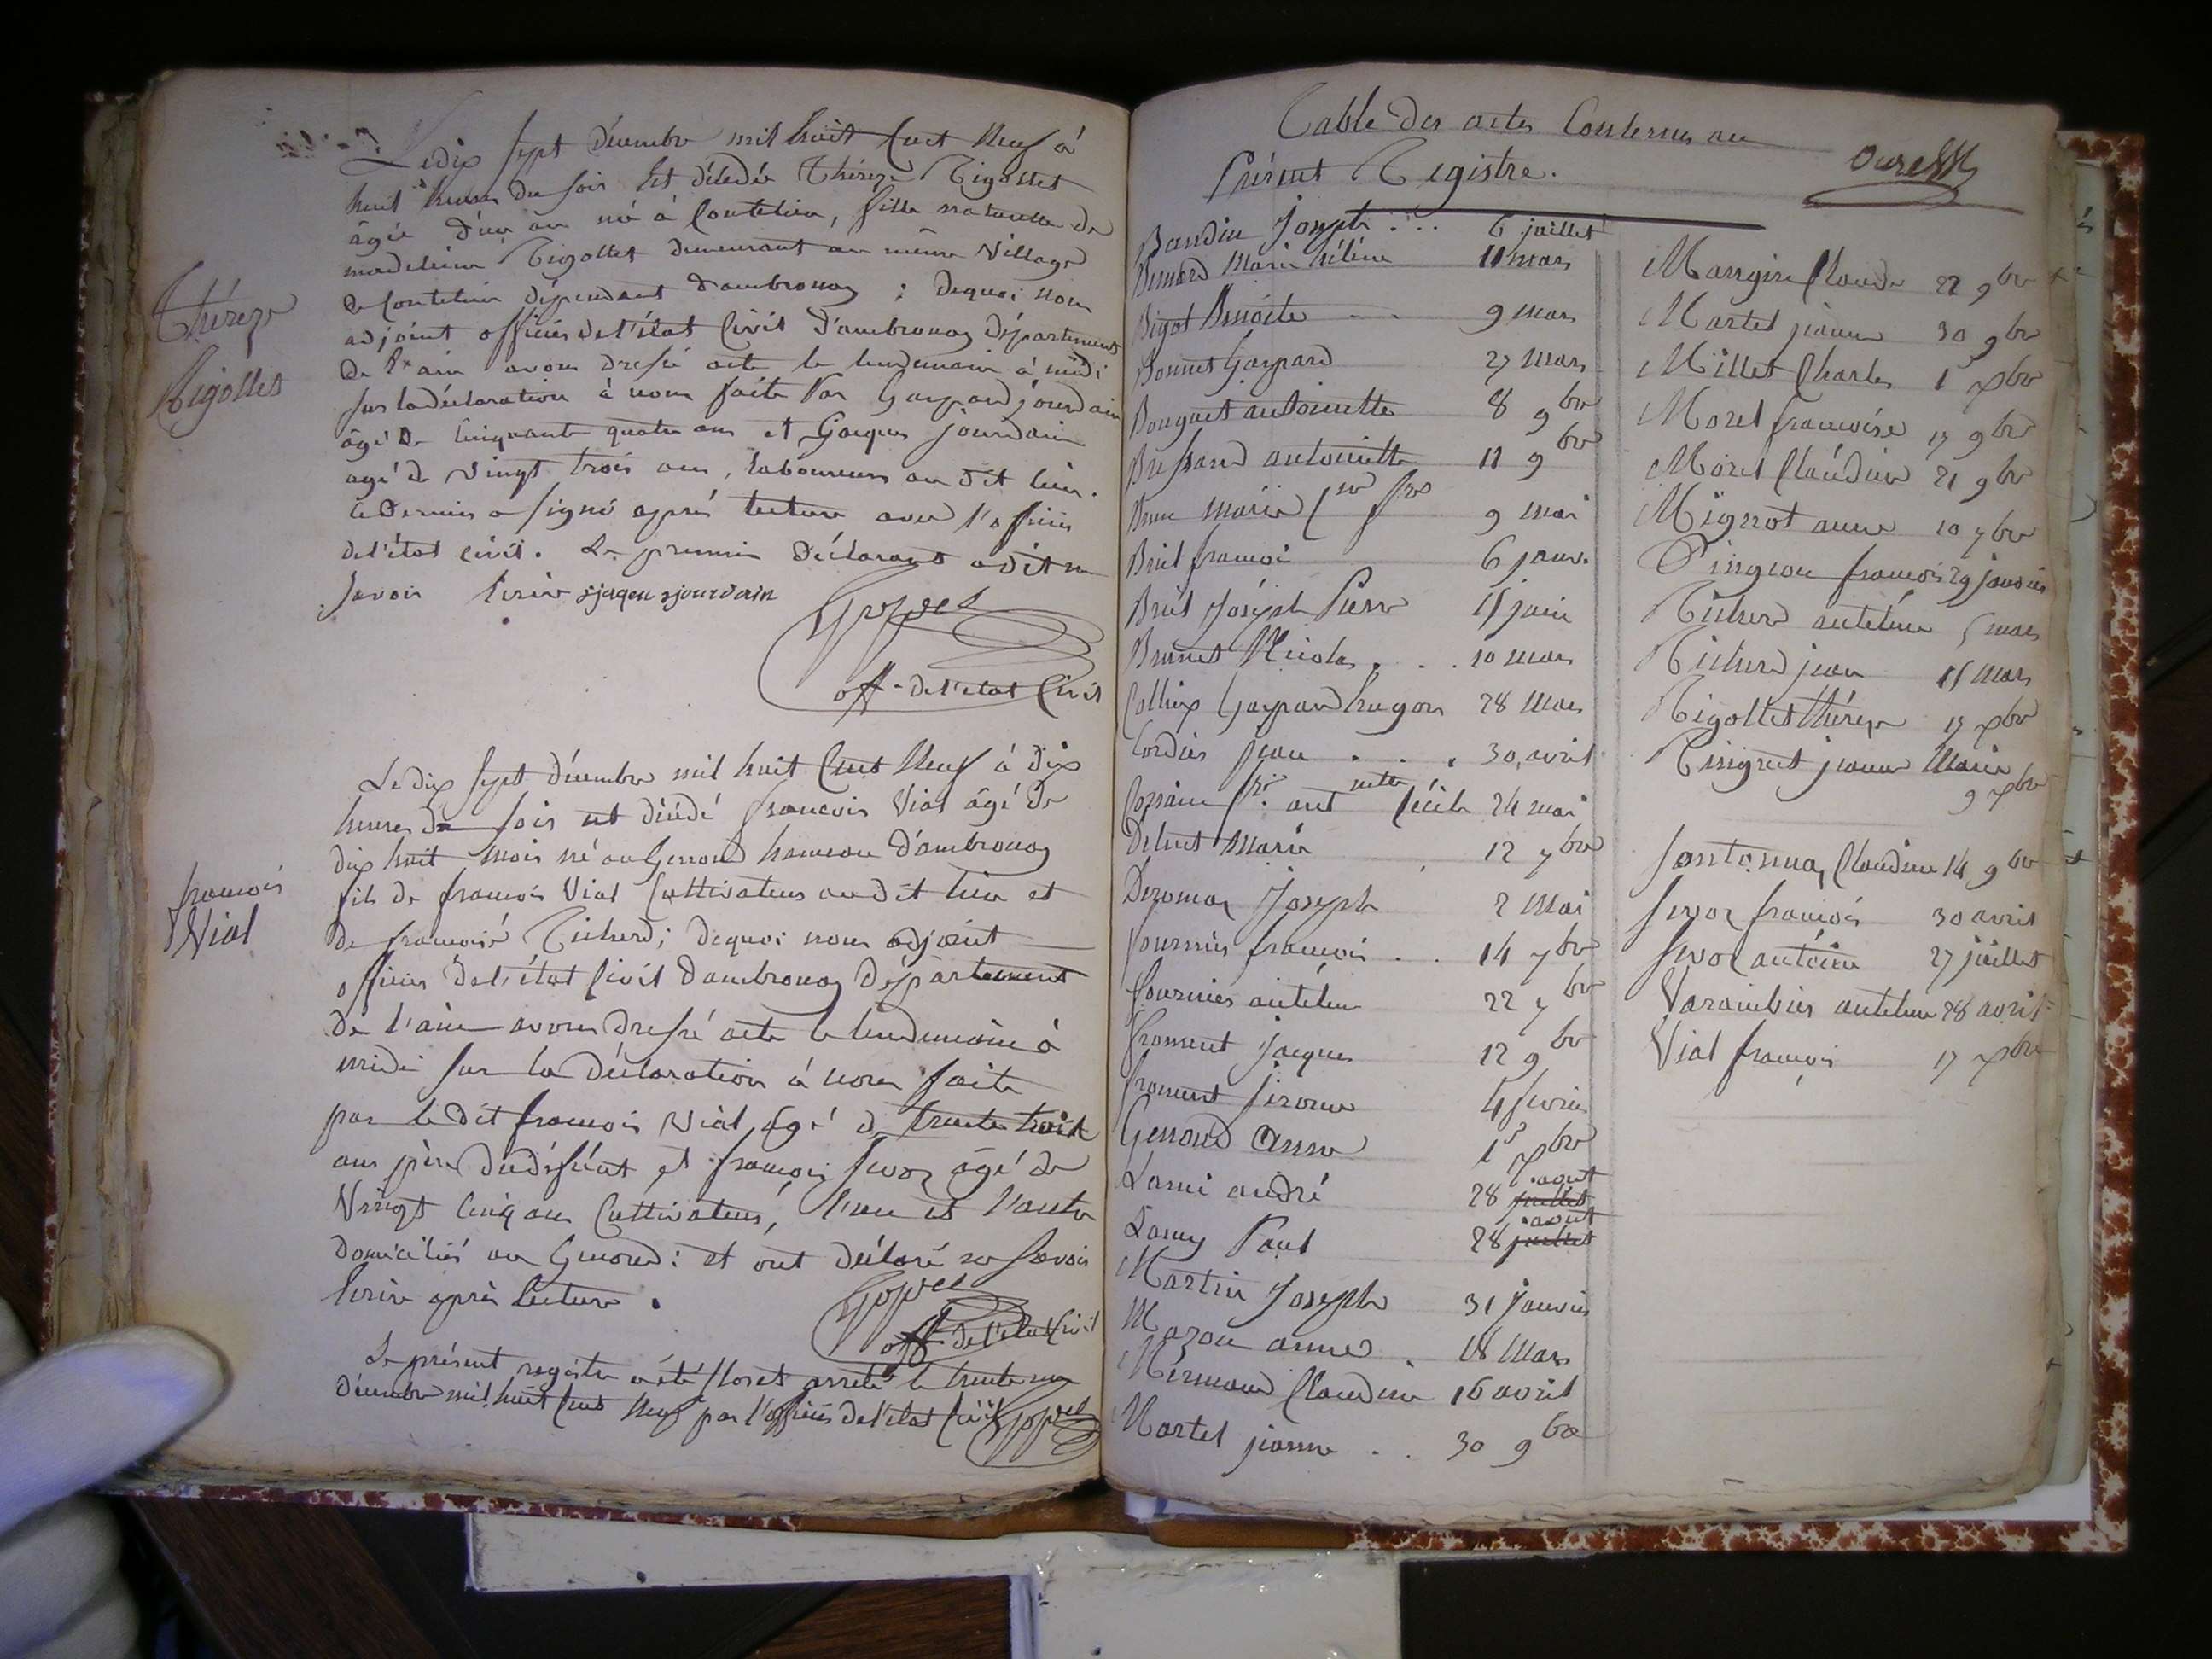 Le dix sept décembre mil huit Cent Neuf à
huit heures du soir Est décédée Théreze Rigollet
âgée d'un an né à Coutelieu, fille naturelle de
madeleine Rigollet demeurant au même Village
de Coutelieu dépendant d'ambronay ; dequoi nous
adjoint officier de l'état Civil d'ambronay département
de l'ain avons dressé acte le lendemain à midi
sur la déclaration à nous faite Par Gaspard jourdain
âgé de Cinquante quatre ans et Jacques jourdain
âgé de Vingt trois ans, laboureurs au dit lieu.
Ce dernier a signé après lecture avec l'officier
de l'état civil. Le premier déclarant a dit ne
savoir Ecrire jaques jourdain
off. de l'etat Civil
Thereze
Rigollet
Le dix sept décembre mil huit Cent Neuf à dix
heures du soir est décédé francois Vial âgé de
dix huit mois né au Genoud hameau d'ambronay
fils de francois Vial Cultivateur au dit lieu et
de francoise Richerd ; dequoi nous adjoint
officier de l'état Civil d'ambronay Département
de l'ain avons dressé acte le lendemain à
midi sur la déclaration à nous faite
par le dit francois Vial âgé de trente trois
ans père du défunt et francois Sevoz âgé de
Vingt Cinq ans Cultivateurs, l'un et l'autre
domiciliés au Genoud : et ont déclaré ne savoir
Ecrire après lecture.
off. de l'etat Civil
francois
Vial
Le présent registre a été Clos et arreté le trente un
décembre mil huit Cent Neuf par l'officier de l'état Civil
Table des actes Contenus au
Présent Registre.
Baudin Joseph . . . 6 juillet
Bernard Marie hélène 11 mars
Bigot Benoite 9 mars
Bonnet Gaspard 27 mars
Bouquet antoinette 8 9bre
Bressand antoinette 11 9bre
9 mai
Bruel francois 6 janv.
Bruel Joseph Pierre 15 juin
Brunet Nicolas . . . 10 mars
Collieux Gaspard hugon 28 Mars
Cordier jean . . . 30 avril
Cécile 24 mai
Marie 12 7bre
Dezomay Joseph 2 Mai
fournier francois . . 14 7bre
fournier antelme 22 7bre
froment jacques 12 9bre
froment jérome 4 fevrier
Genoud Anne 1er xbre
Lami andré 28 juillet aout
Lamy Paul 28 juillet aout
Martin Joseph 31 janvier
Mazou anne . 18 Mars
Mermand Claudine 16 avril
Martel jeanne . . 30 9bre
Mangin Claude 22 9bre
Martel jeanne 30 9bre
Millet Charles 1er xbre
Morel francoise 17 9bre
Morel Claudine 21 9bre
Mignot anne 10 7bre
Pingeon francois 29 janvier
Richerd antelme 5 mars
Richerd jean 15 Mars
Rigollet thérèze 17 xbre
Tissignet jeanne Marie
9 xbre
Santonnay Claudine 14 9bre
Sevoz francois 30 avril
Sevoz antoine 27 juillet
Varambier antelme 28 avril
Vial francois 17 xbre